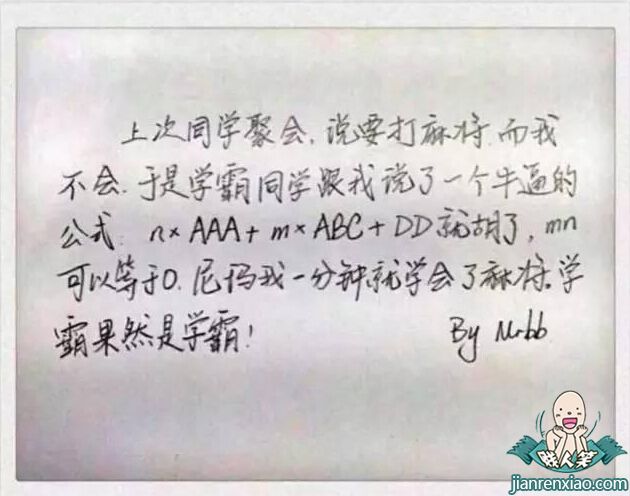 上次同学聚会,说要打麻将,而我
不会.于是学霸同学跟我说了一个牛逼的
公式: n×AAA+m×ABC+DD就胡了,mn
可以等于0.尼玛我一分钟就学会了麻将.学
霸果然是学霸!
By Mrbb
贱人笑
jianrenxiao.com